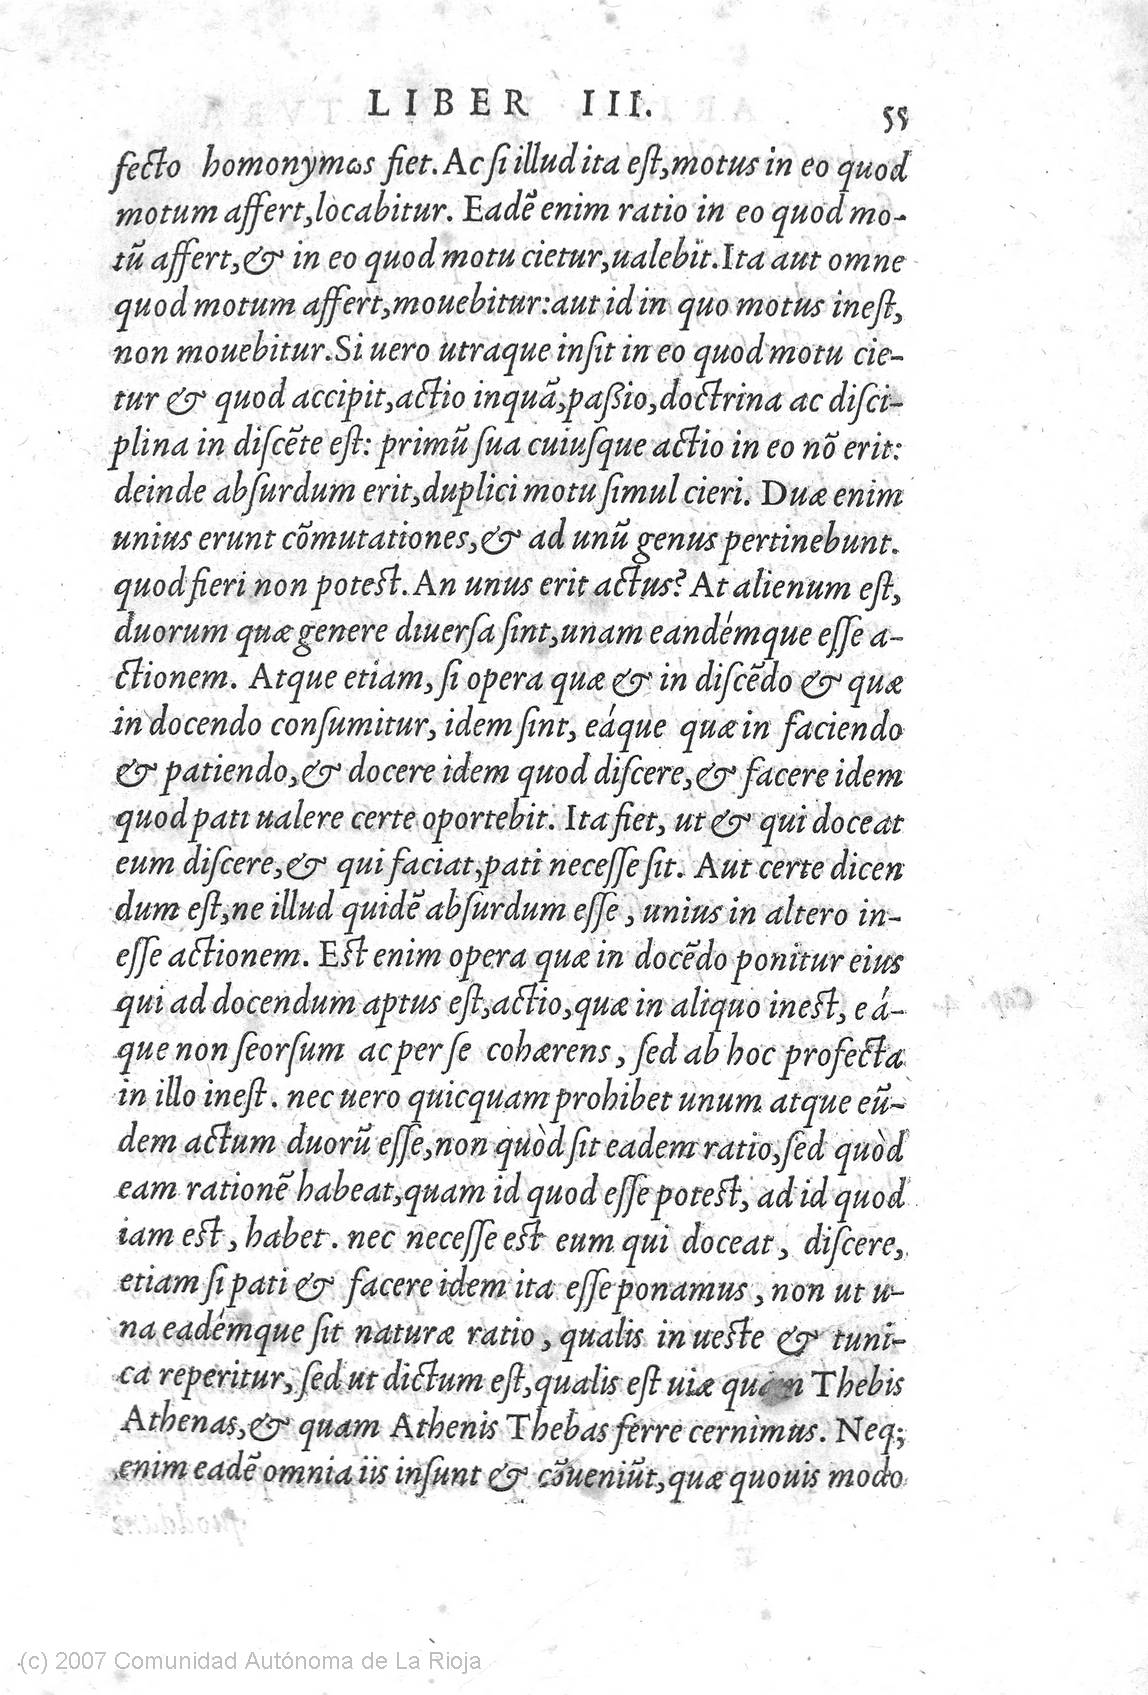 LIBER III.
55
fecto homonymωs fiet. Ac si illud ita est, motus in eo quod
motum affert, locabitur. Eadẽ enim ratio in eo quod mo-
tũ affert, & in eo quod motu cietur, ualebit. Ita aut omne
quod motum affert, mouebitur: aut id in quo motus inest,
non mouebitur. Si uero utraque insit in eo quod motu cie-
tur & quod accipit, actio inquã, passio, doctrina ac disci-
plina in discẽte est: primũ sua cuiusque actio in eo nõ erit:
deinde absurdum erit, duplici motu simul cieri. Duæ enim
unius erunt cõmutationes, & ad unũ genus pertinebunt.
quod fieri non potest. An unus erit actus? At alienum est,
duorum quæ genere diuersa sint, unam eandémque esse a-
ctionem. Atque etiam, si opera quæ & in discẽdo & quæ
in docendo consumitur, idem sint, eáque quæ in faciendo
& patiendo, & docere idem quod discere, & facere idem
quod pati ualere certe oportebit. Ita fiet, ut & qui doceat
eum discere, & qui faciat, pati necesse sit. Aut certe dicen
dum est, ne illud quidẽ absurdum esse, unius in altero in-
esse actionem. Est enim opera quæ in docẽdo ponitur eius
qui ad docendum aptus est, actio, quæ in aliquo inest, eá-
que non seorsum ac per se cohærens, sed ab hoc profecta
in illo inest. nec uero quicquam prohibet unum atque eũ-
dem actum duorũ esse, non quòd sit eadem ratio, sed quòd
eam rationẽ habeat, quam id quod esse potest, ad id quod
iam est, habet. nec necesse est eum qui doceat, discere,
etiam si pati & facere idem ita esse ponamus, non ut u-
na eadémque sit naturæ ratio, qualis in ueste & tuni-
ca reperitur, sed ut dictum est, qualis est uiæ quam Thebis
Athenas, & quam Athenis Thebas ferre cernimus. Neq;
enim eadẽ omnia iis insunt & cõueniũt, quæ quouis modo
(c) 2007 Comunidad Autónoma de La Rioja